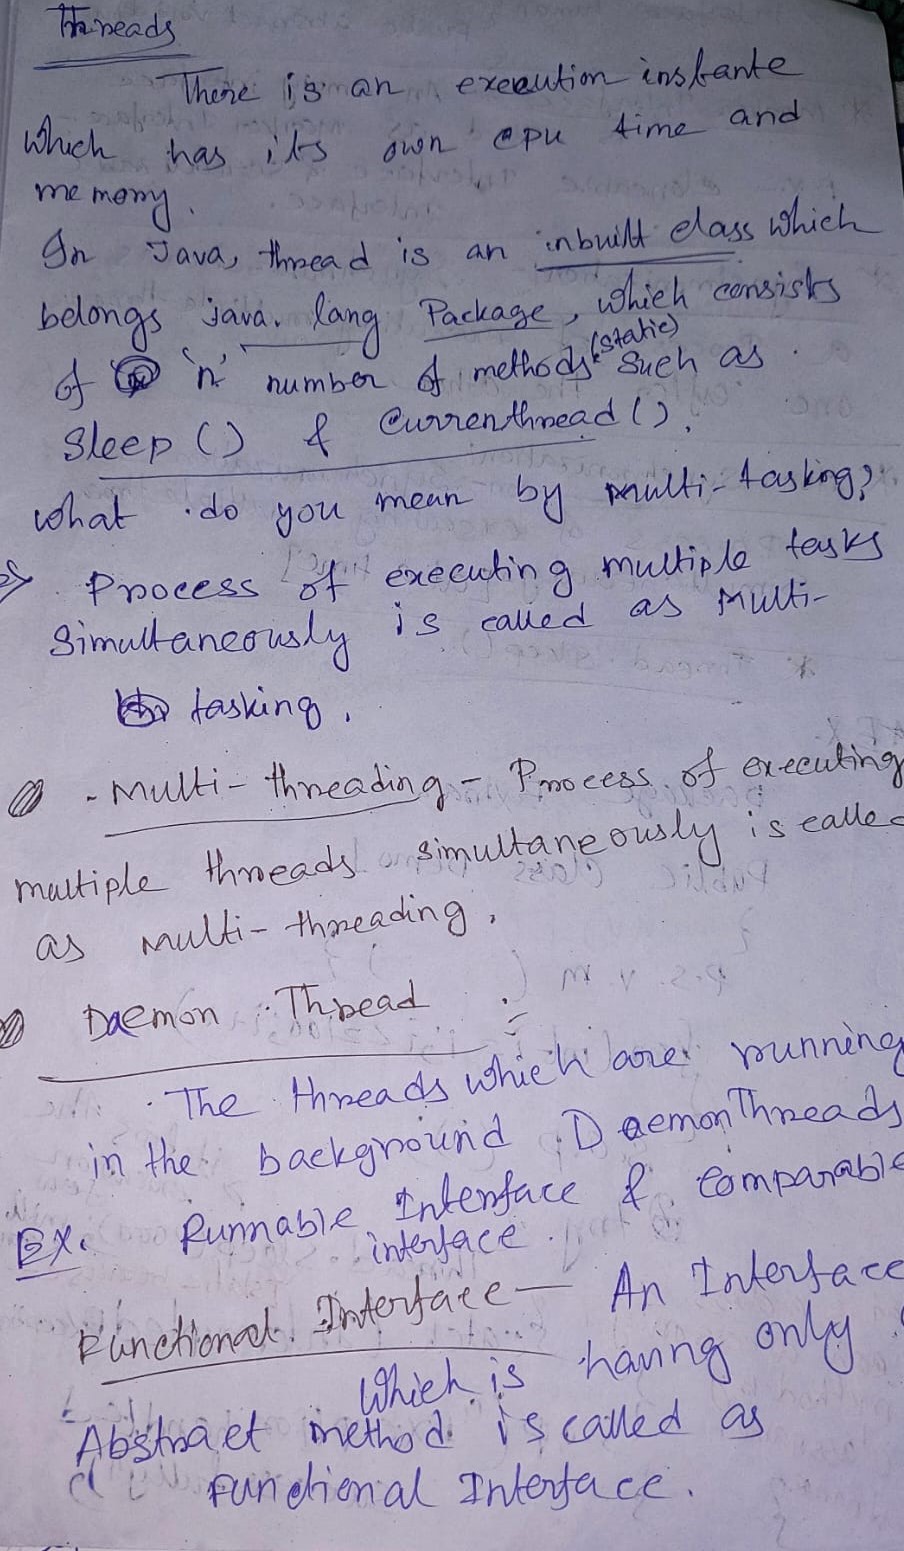 Threads
There is an execution instante
which has its own cpu time and
memory.
In Java, thread is an inbuilt class which
belongs java. lang Package, which consists
of 'n' number of methods (static) such as
Sleep () & Currenthread ().
What do you mean by multi-tasking?
Process of executing multiple tasks
Simultaneously is called as Multi-
tasking.
- Multi-threading - Process of executing
multiple threads simultaneously is called
as Multi-threading.
Daemon Thread :-
The threads which are running
in the background DaemonThreads
Ex. Runnable Interface & Comparable
interface.
Functional Interface - An Interface
Which is having only
Abstract method is called as
Functional Interface.